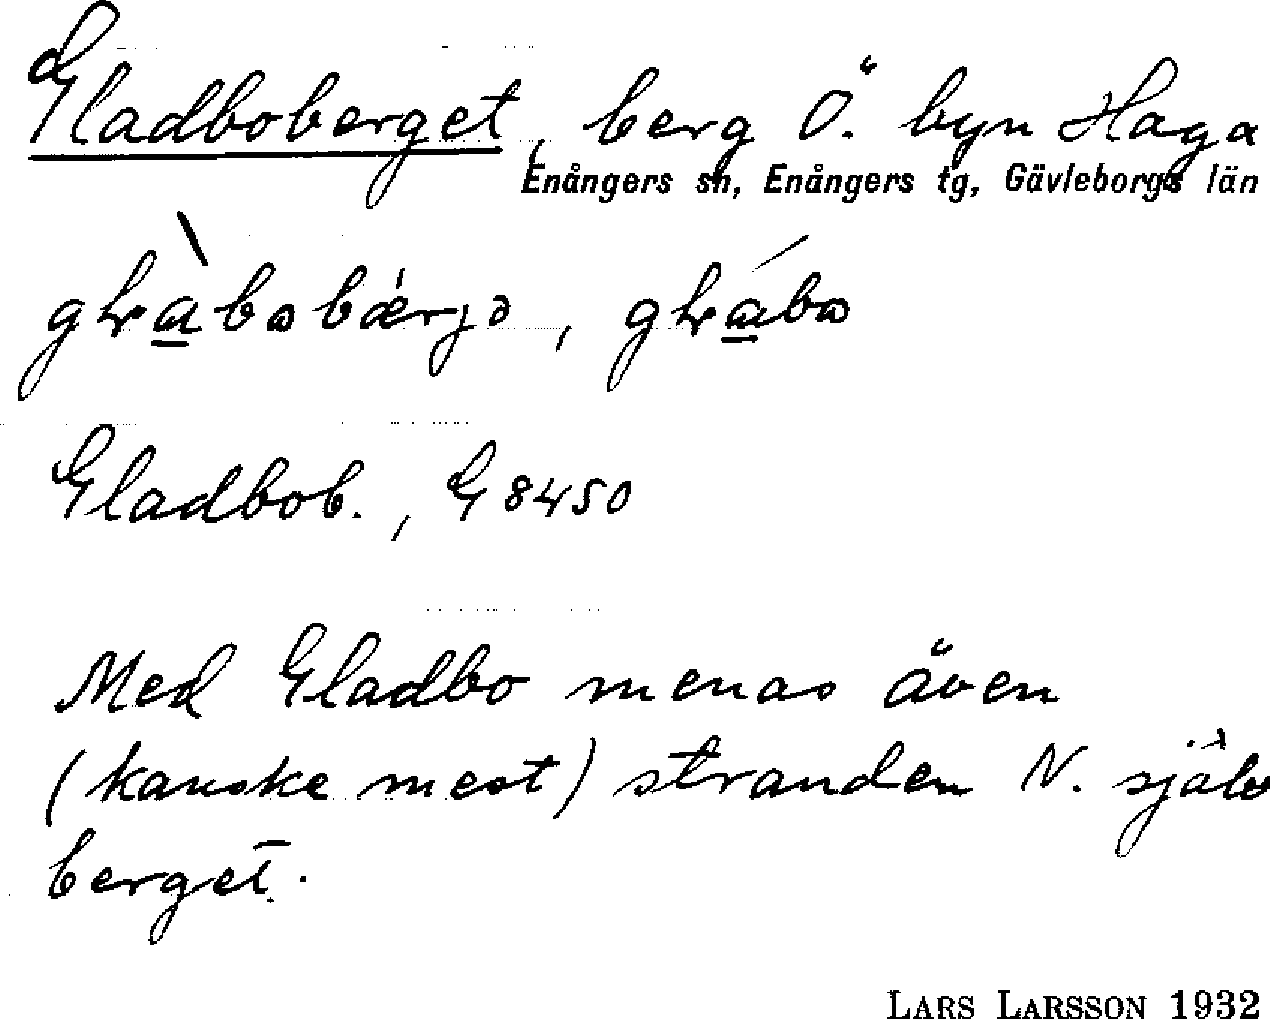 Gladboberget, berg Ö. byn Haga
Enångers sn, Enångers tg, Gävleborgs län
Gladbob., G 8450
Med Gladbo menas även
(kanske mest) stranden N. själv
berget.
LARS LARSSON 1932